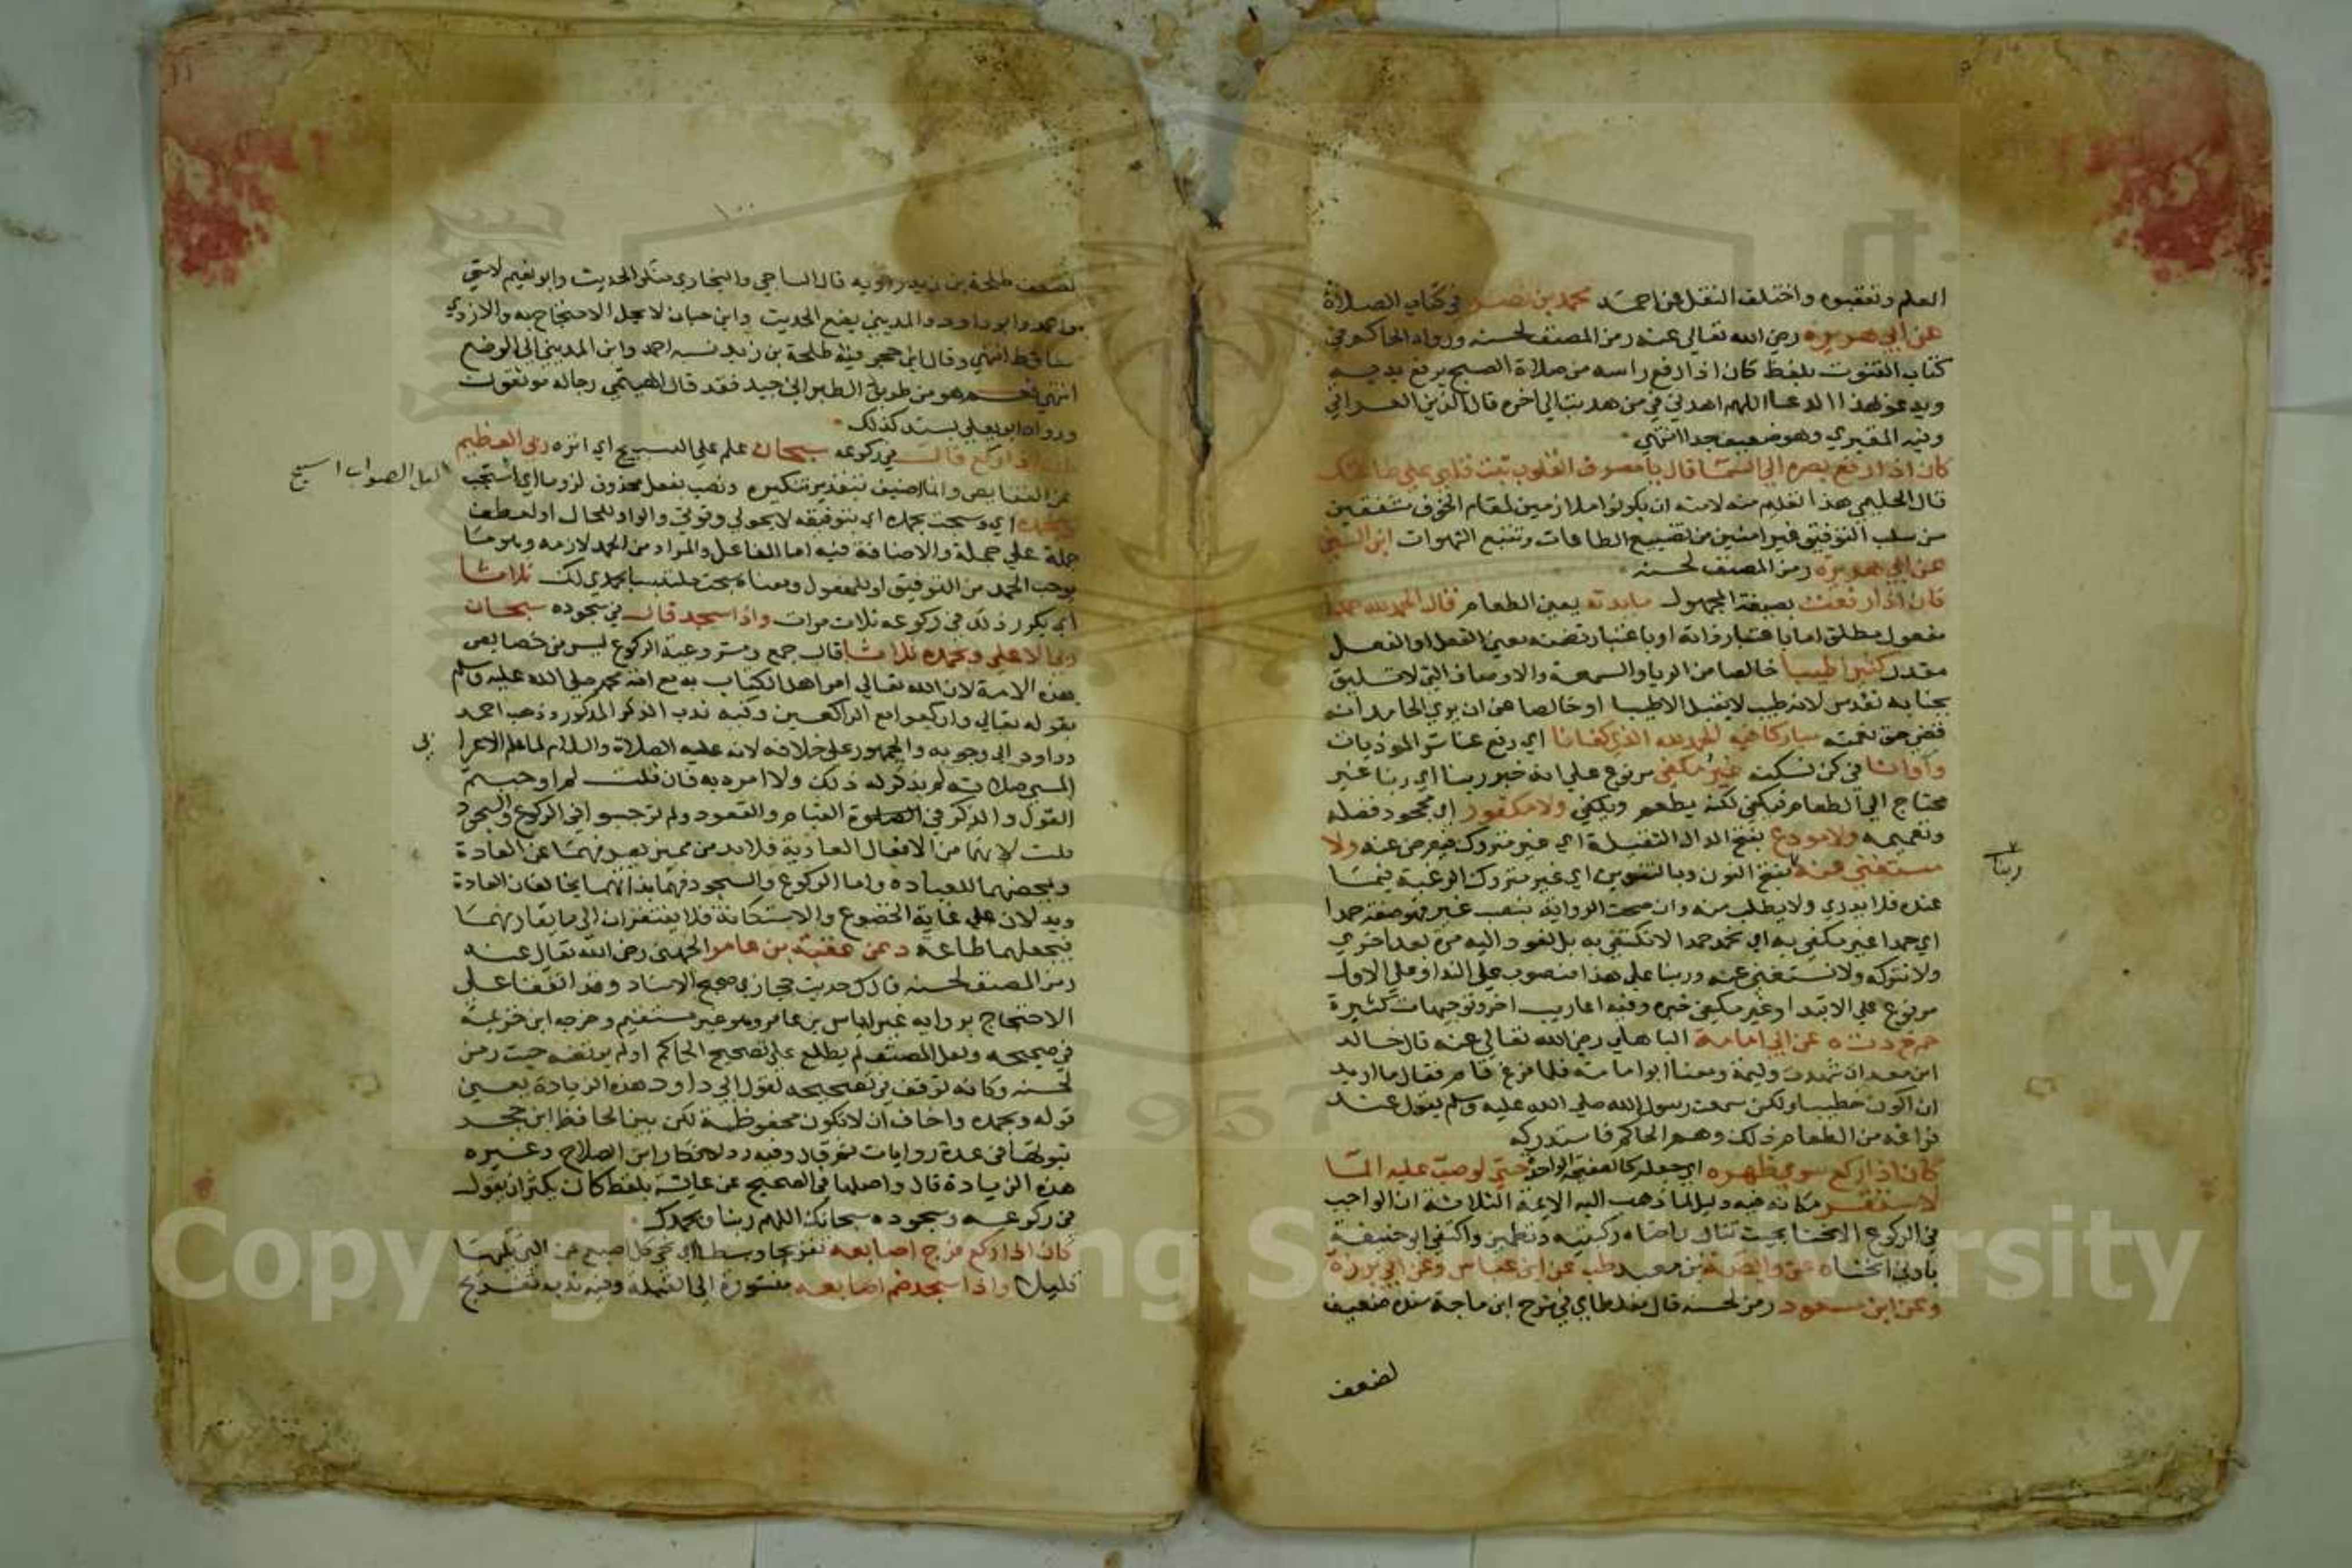 العلم وتعقبوه واختلف النقل عن احمد محمد بن نصر في كتاب الصلاة
عن ابي هريرة رضي الله تعالى عنه رمز المصنف لحسنه ورواه الحاكم في
كتاب القنوت بلفظ كان اذا رفع راسه من صلاة الصبح يرفع يديه
ويدعو بهذا الدعا اللهم اهدني فيمن هديت الى اخره قال الزين العراقي
وفيه المقبري وهو ضعيف جدا انتهى
كان اذا رفع بصره الى السما قال يا مصرف القلوب ثبت قلبي على طاعتك
قال الحليمي هذا تعليم منه لامته ان يكونوا ملازمين لمقام الخوف مشفقين
من سلب التوفيق غير امنين من تضييع الطاعات وتتبع الشهوات ابن السني
عن ابي هريرة رمز المصنف لحسنه
كان اذا رفعت بصيغة المجهول مايدته يعني الطعام قال الحمد لله حمدا
مفعول مطلق اما باعتبار ذاته او باعتبار تضمنه معنى الفعل او الفعل
مقدر كثيرا طيبا خالصا من الريا والسمعة والاوصاف التي لا تليق
بجنابه تقدس لانه طيب لا يقبل الا طيبا او خالصا عن ان يرى الحامد انه
قضى حق نعمته مباركا فيه الحمد لله الذي كفانا اي رفع عنا شر الموذيات
وآوانا في كن نسكنه غير مكفي مرفوع على انه خبر ربنا اي ربنا غير
محتاج الى الطعام فيكفى لكنه يطعم ويكفي ولا مكفور اي مجحود فضله
ونعميمه ولا مودع بفتح الدال الثقيلة اي غير متروك فيعرض عنه ولا
مستغنى عنه بفتح النون وبالتنوين اي غير متروك الرغبة فيما
ربنا
عنده فلا يدرى ولا يطلب منه وان صحت الرواية بنصب غير فهو صفة حمدا
اي حمدا غير مكفي به اي نحمد حمدا لا نكتفي به بل نعود اليه مرة بعد اخرى
ولا نتركه ولا نستغني عنه وربنا على هذا منصوب على الندا وعلى الاول
مرفوع على الابتدا وغير مكفي خبره وفيه اعاريب اخر وتوجيهات كثيرة
حم خ د ت ه عن ابي امامة الباهلي رضي الله تعالى عنه قال خالد
ابن معدان شهدت وليمة ومعنا ابو امامة فلما فرغ قام فقال ما اريد
ان اكون خطيبا ولكن سمعت رسول الله صلى الله عليه وسلم يقول عند
فراغه من الطعام ذلك ووهم الحاكم فاستدركه
كان اذا ركع سوى ظهره اي جعله كالصفيحة الواحدة حتى لو صب عليه الما
لاستقر مكانه فيه دليل لما ذهب اليه الايمة الثلاثة ان الواجب
في الركوع الانحنا بحيث تنال راحتاه ركبتيه وتطمئن واكتفى ابو حنيفة
بادنى انحناه عن وابصة بن معبد طب عن ابن عباس وعن ابي برزة
وعن ابن مسعود رمز لحسنه قال مغلطاي في شرح ابن ماجة سنده ضعيف
لضعف
١٠٠
لضعف طلحة بن زيد راويه قال الساجي والبخاري منكر الحديث وابو نعيم لا شي
واحمد وابو داود والمديني يضع الحديث وابن حبان لا يحل الاحتجاج به والازدي
ساقط انتهى وقال ابن حجر فيه طلحة بن زيد نسبه احمد وابن المديني الى الوضع
انتهى نعم هو من طريق الطبراني جيد فقد قال الهيتمي رجاله موثقون
ورواه ابو يعلى بسند كذلك
كان اذا ركع قال في ركوعه سبحان علم على التسبيح اي انزه ربي العظيم
عن النقايص وانما اضيف بتقدير تنكيره ونصب بفعل محذوف لزوما اي اسبح
لعل الصواب اسبح
وبحمده اي وسبحت بحمده اي بتوفيقه لا بحولي وقوتي والواو للحال او لعطف
جملة على جملة والاضافة فيه اما للفاعل والمراد من الحمد لازمه وهو ما
يوجب الحمد من التوفيق او للمفعول ومعناه سبحت ملتبسا بحمدي لك ثلاثا
اي يكرر ذلك في ركوعه ثلاث مرات واذا سجد قال في سجوده سبحان
ربي الاعلى وبحمده ثلاثا قال جمع ومشروعية الركوع ليس من خصايص
هذه الامة لان الله تعالى امر اهل الكتاب به مع امة محمد صلى الله عليه وسلم
بقوله تعالى واركعوا مع الراكعين وفيه ندب الذكر المذكور وذهب احمد
وداود الى وجوبه والجمهور على خلافه لانه عليه الصلاة والسلام لما علم الاعرا
بي
المسي صلاته لم يذكر له ذلك ولا امره به فان قلت لم اوجبتم
القول والذكر في الصلوة القيام والقعود ولم توجبوا في الركوع والسجود
قلت لانهما من الافعال العادية فلابد من مميز يصرفهما عن العادة
ويمحضهما للعبادة واما الركوع والسجود فهما بذاتهما يخالفان العادة
ويدلان على غاية الخضوع والاستكانة فلا يفتقران الى ما يقارنهما
فيجعلهما طاعة د عن عقبة بن عامر الجهني رضي الله تعالى عنه
رمز المصنف لحسنه قال ك حديث حجازي صحيح الاسناد وقد اتفقا على
الاحتجاج برواية غير اياس بن عامر وهو غير مستقيم وخرجه ابن خزيمة
في صحيحه ولعل المصنف لم يطلع على تصحيح الحاكم او لم يرتضه حيث رمز
لحسنه وكانه توقف في تصحيحه لقول ابي داود هذه الزيادة يعني
قوله وبحمده واخاف ان لا تكون محفوظة لكن بين الحافظ ابن حجر
ثبوتها في عدة روايات ثم قال وفيه رد لانكار ابن الصلاح وغيره
هذه الزيادة قال واصلها في الصحيح عن عايشة بلفظ كان يكثر ان يقول
في ركوعه وسجوده سبحانك اللهم ربنا وبحمدك
كان اذا ركع فرج اصابعه تفريجا وسطا اي نحى كل اصبع عن التي تليها
قليلا واذا سجد ضم اصابعه منشورة الى القبلة وفيه ندب تفريج
Copyright © King Saud University
1957